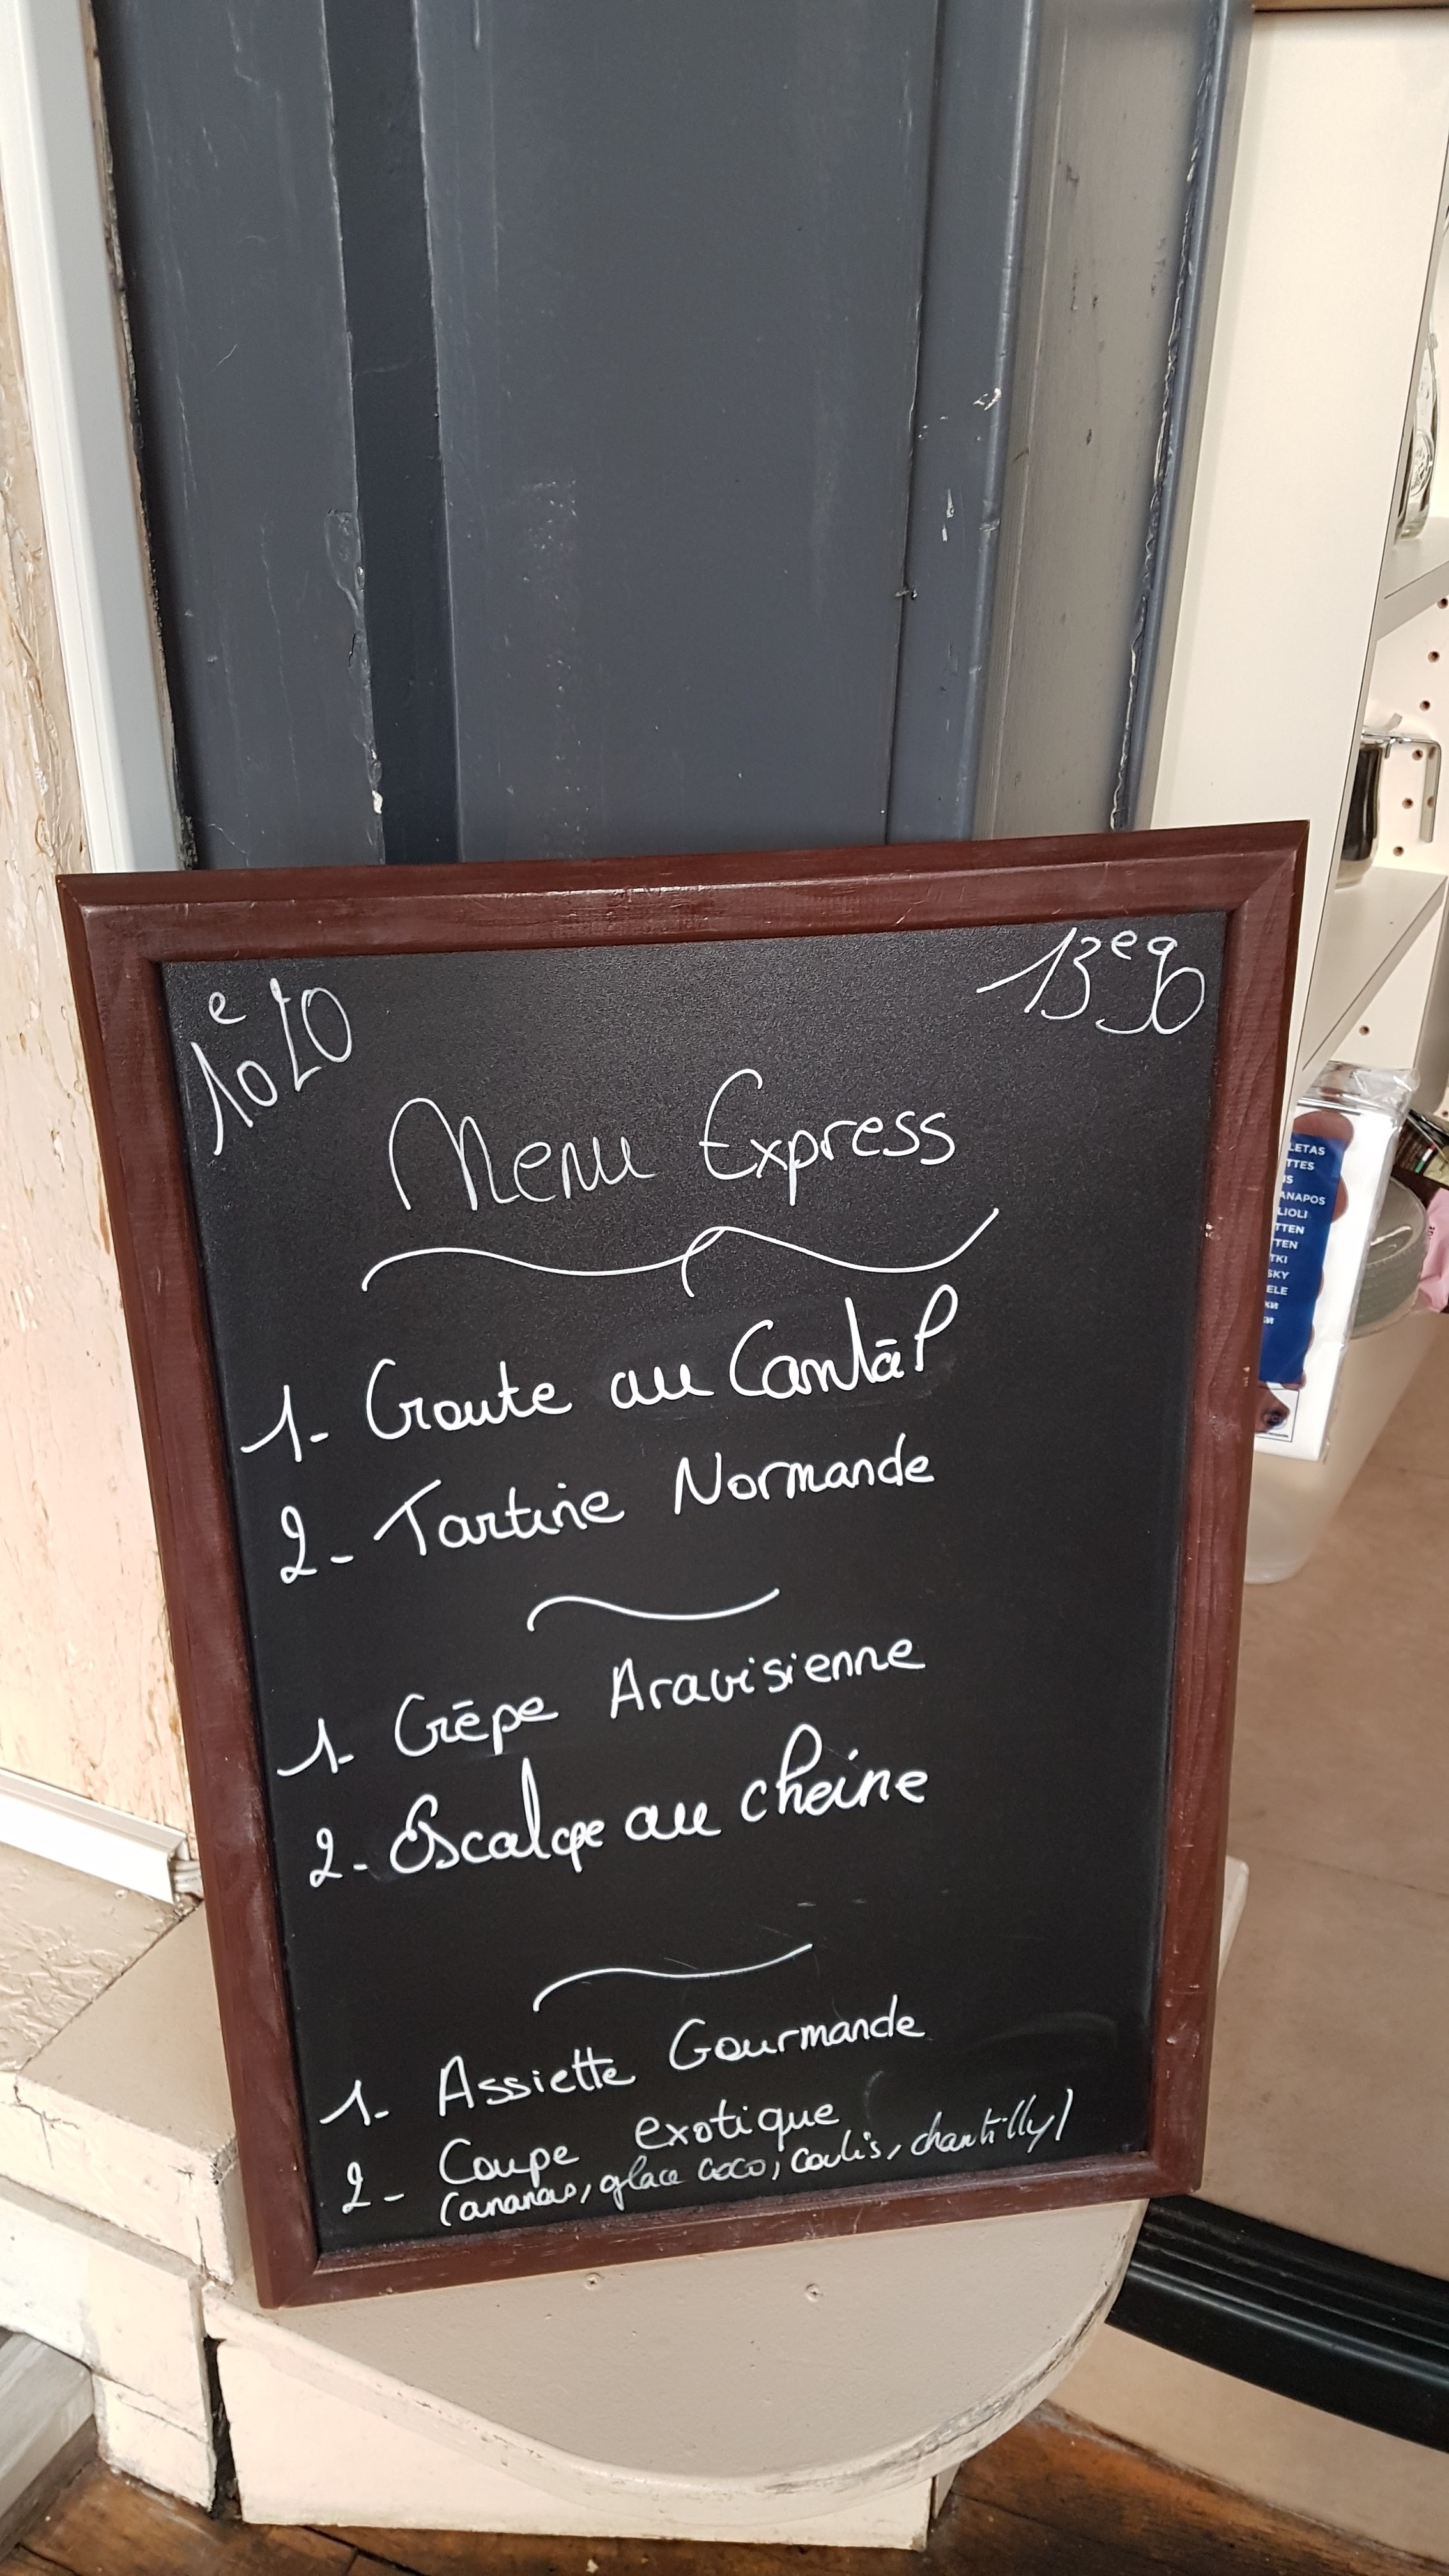 10€20
13€90
Menu Express
1- Croute au Cantāl
2- Tartine Normande
1- Crēpe Aravisienne
2- Escalope au cheine
1- Assiette Gourmande
2- Coupe exotique
(ananas, glace coco, coulis, chantilly)
LETAS
TTES
ANAPOS
LIOLI
TTEN
TEN
TKI
SKY
ELE